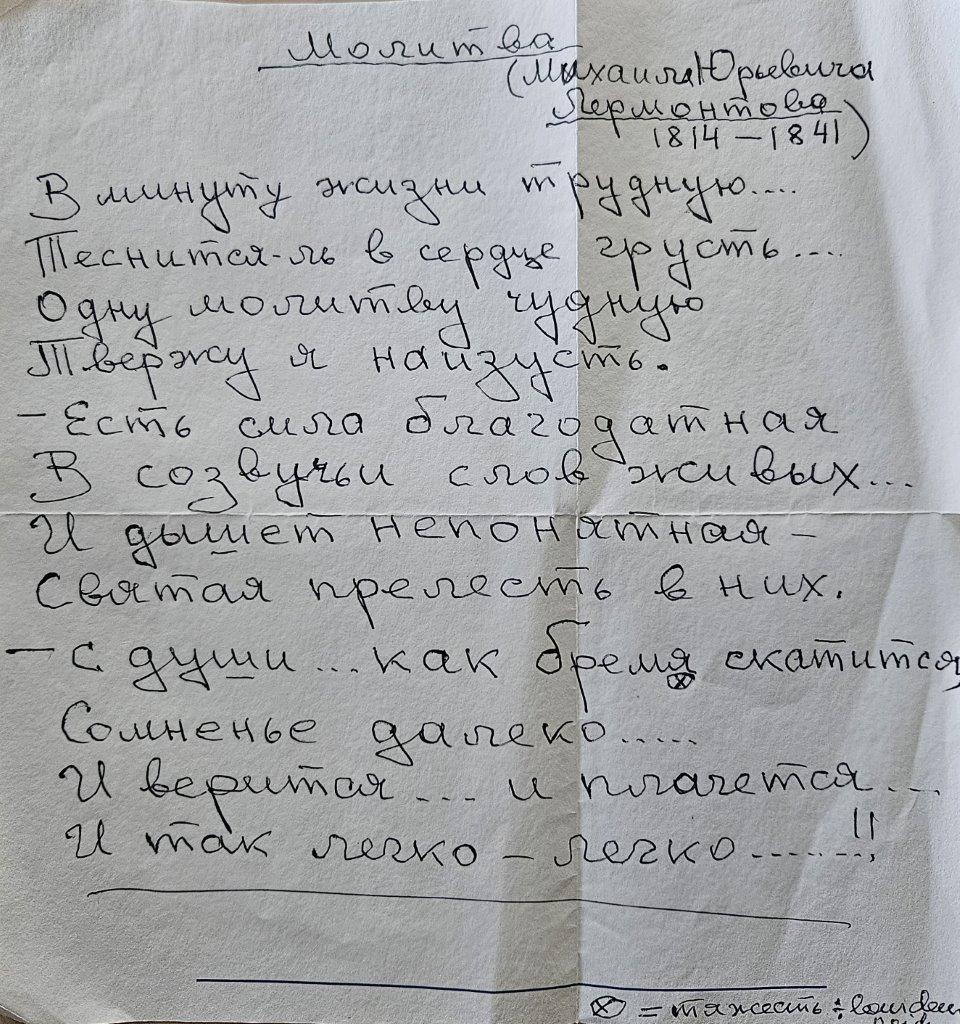 Молитва
(Михаила Юрьевича
Лермонтова
1814 – 1841)
В минуту жизни трудную....
Теснится-ль в сердце грусть....
Одну молитву чудную
Твержу я наизусть.
– Есть сила благодатная
В созвучьи слов живых...
И дышет непонятная –
Святая прелесть в них.
– С души... как бремя скатится,
Сомненье далеко.....
И верится.... и плачется...
И так легко – легко.......!!
⊗ = тяжесть